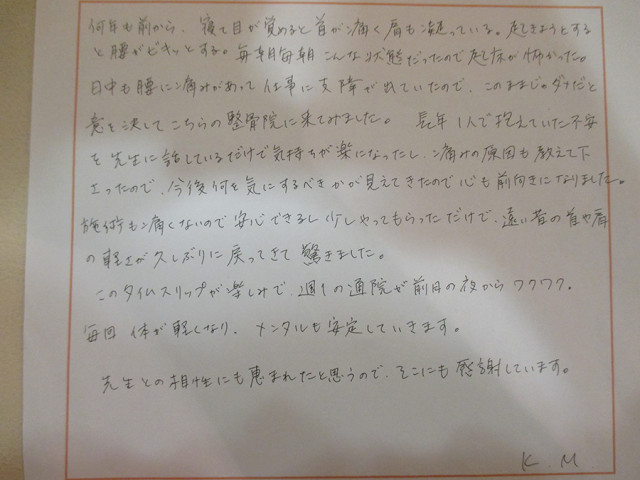 何年も前から、寝て目が覚めると首が痛く肩も凝っている。起きようとする
と腰がピキッとする。毎朝毎朝こんな状態だったので起床が怖かった。
日中も腰に痛みがあって仕事に支障が出ていたので、このままじゃダメだと
意を決してこちらの整骨院に来てみました。 長年1人で抱えていた不安
を先生に話しているだけで気持ちが楽になったし、痛みの原因も教えて下
さったので、今後何を気にするべきかが見えてきたので心も前向きになりました。
施術も痛くないので安心できるし少しやってもらっただけで、遠い昔の首や肩
の軽さが久しぶりに戻ってきて驚きました。
このタイムスリップが楽しみで、週1の通院が前日の夜からワクワク。
毎回体が軽くなり、メンタルも安定していきます。
先生との相性にも恵まれたと思うので、そこにも感謝しています。
K.M.